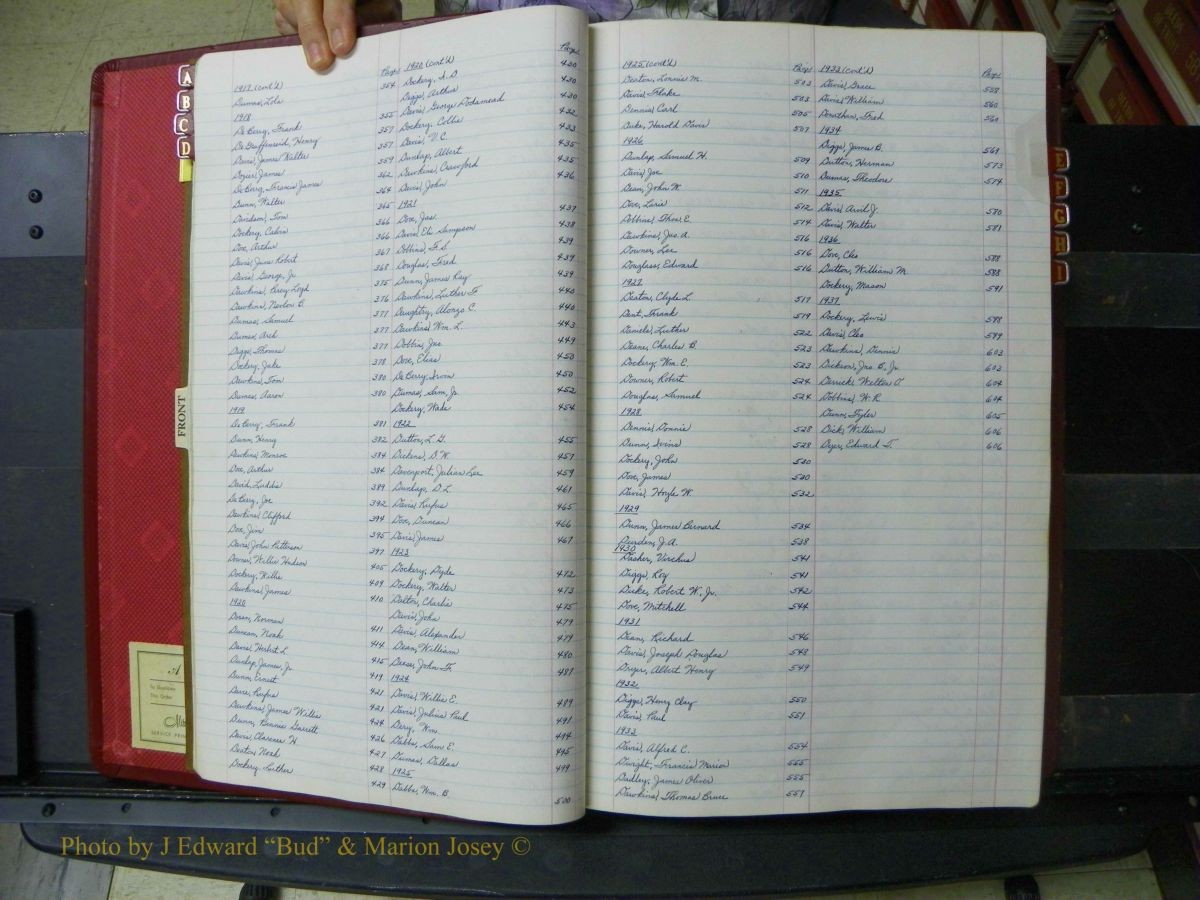 A
B
C
D
FRONT
1917 (cont'd)
Page
Dumas, Lola 354
1918
DeBerry, Frank 355
DeGraffenreid, Henry 357
Davis, James Walter 357
Dozier, James 359
DeBerry, Francis James 362
Dunn, Walter 364
Davidson, Tom 365
Dockery, Calvin 366
Doe, Arthur 366
Davis, June Robert 367
Davis, George, Jr. 368
Dawkins, Percy Loyd 375
Dawkins, Newton B. 376
Dumas, Samuel 377
Dumas, Arch 377
Diggs, Thomas 377
Dockery, Jake 378
Dawkins, Tom 380
Dumas, Aaron 380
1919
DeBerry, Frank 381
Dunn, Henry 382
Dawkins, Monroe 384
Doe, Arthur 384
David, Luddie 389
DeBerry, Joe 392
Dawkins, Clifford 394
Doe, Jim 395
Davis, John Patterson 397
Downer, Willie Hudson 405
Dockery, Willie 409
Dawkins, James 410
1920
Doran, Norman 411
Duncan, Noah 414
Davis, Herbert L. 415
Dunlap, James, Jr. 419
Dunn, Ernest 421
Dave, Rufus 421
Dawkins, James Willis 424
Dunn, Bennie Garrett 426
Davis, Clarence H. 427
Deaton, Noah 428
Dockery, Luther 429
1920 (cont'd)
Page
Dockery, A.D. 430
Diggs, Arthur 430
Davis, George Rodamead 430
Dockery, Collie 432
Davis, V.C. 433
Dunlap, Albert 435
Dawkins, Crawford 435
Davis, John 436
1921
Doe, Jas. 437
Davis, Eli Sampson 438
Dobbins, F.S. 439
Douglas, Fred 439
Dunn, James Ray 439
Dawkins, Luther F. 440
Daughtry, Alonzo C. 440
Dawkins, Wm. L. 443
Dobbin, Jas. 449
Doe, Elias 450
DeBerry, Irvin 450
Dumas, Sam, Jr. 452
Dockery, Wade 454
1922
Dutton, L.G. 455
Dickens, D.W. 457
Davenport, Julian Lee 459
Dunlap, D.L. 461
Davis, Rufus 465
Doe, Duncan 466
Davis, James 467
1923
Dockery, Clyde 472
Dockery, Walter 473
Dalton, Charlie 475
Davis, John 479
Davis, Alexander 479
Dean, William 480
Deese, John F. 487
1924
Davis, Willie E. 489
Davis, Julius Paul 491
Dery, Wm. 494
Dabbs, Sam E. 495
Dumas, Dallas 499
1925
Dabbs, Wm. B. 500
1925 (cont'd)
Page
Deaton, Lonnie M. 503
Davis, Flake 503
Dennis, Carl 505
Duke, Harold Davis 507
1926
Dunlap, Samuel H. 509
Davis, Joe 510
Dean, John W. 511
Doe, Lurie 512
Dobbins, Thos. E. 514
Dawkins, Jas. A. 516
Downer, Lee 516
Douglass, Edward 516
1927
Deaton, Clyde L. 517
Dent, Frank 519
Daniels, Luther 522
Deane, Charles B. 523
Dockery, Wm. E. 523
Downer, Robert 524
Douglas, Samuel 524
1928
Dennis, Donnie 528
Dunn, Irvine 528
Dockery, John 530
Doe, James 530
Davis, Hoyle W. 532
1929
Dunn, James Bernard 534
Durden, J.A. 538
1930
Dasher, Virchus 541
Diggs, Roy 541
Duke, Robert W., Jr. 542
Dove, Mitchell 544
1931
Dean, Richard 546
Davis, Joseph Douglas 548
Dryer, Albert Henry 549
1932
Diggs, Henry Clay 550
Davis, Paul 551
1933
Davis, Alfred C. 554
Dwight, Francis Marion 555
Dudley, James Oliver 555
Dawkins, Thomas Bruce 557
1933 (cont'd)
Page
Davis, Grace 558
Davis, William 560
Donathan, Fred 560
1934
Diggs, James B. 569
Dutton, Herman 573
Dumas, Theodore 574
1935
Davis, Arvil J. 580
Davis, Walter 581
1936
Doe, Cleo 588
Dutton, William M. 588
Dockery, Mason 591
1937
Dockery, Lewis 598
Davis, Cleo 599
Dawkins, Dennis 603
Dickson, Jas. B., Jr. 603
Derrick, Welton A. 604
Dobbins, W.R. 604
Dunn, Tyler 605
Dick, William 606
Dyer, Edward T. 606
E
F
G
H
I
Photo by J Edward “Bud” & Marion Josey ©